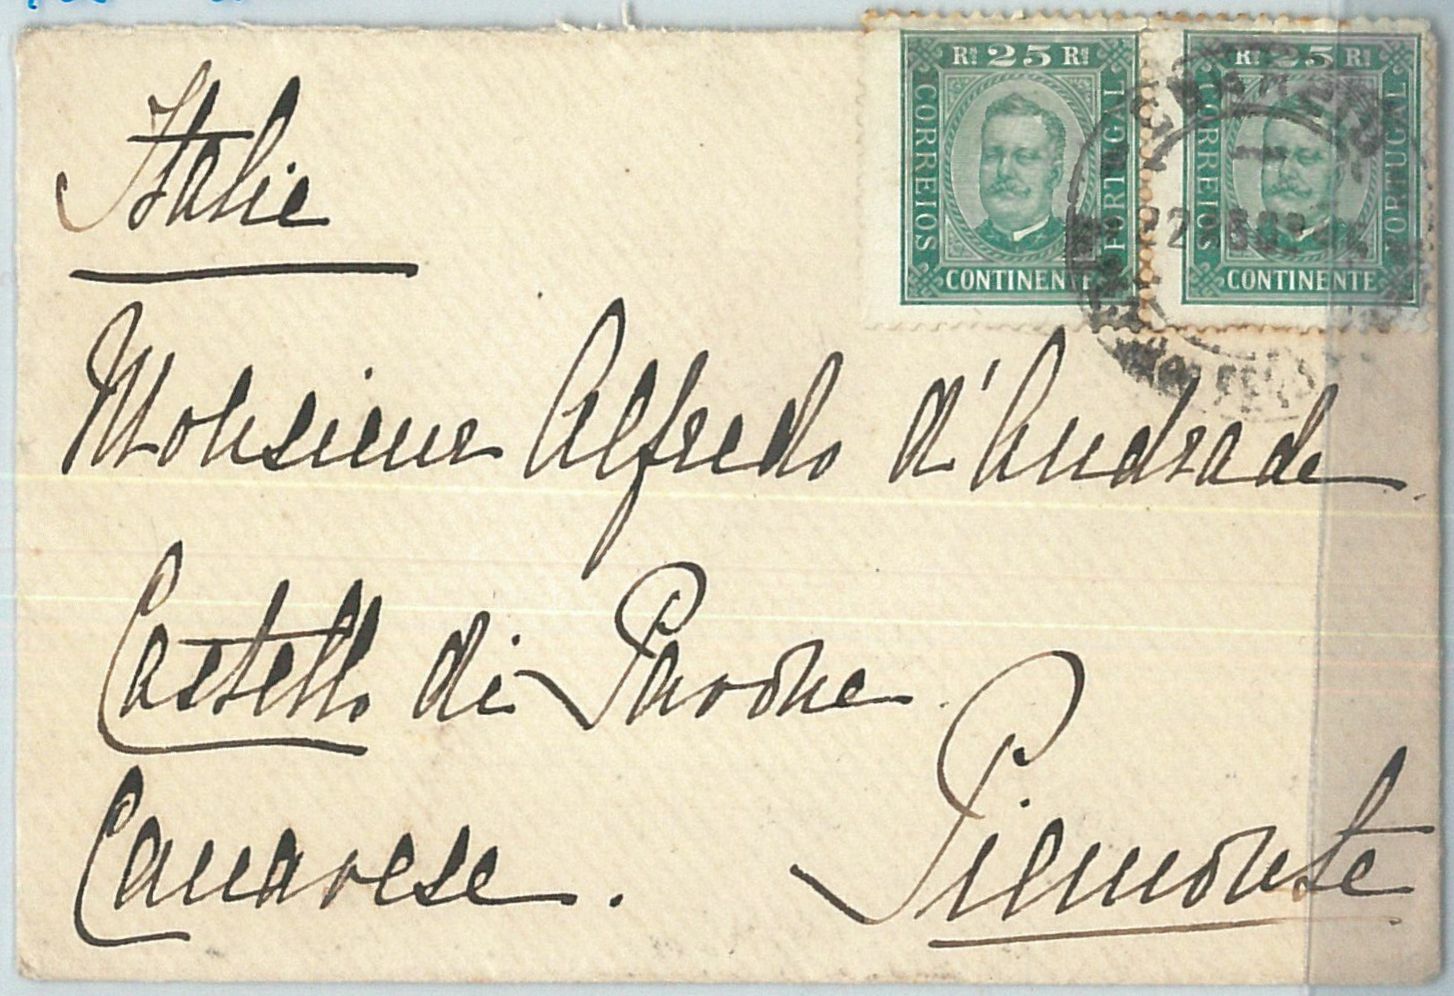 Italie
Rs 25 Rs
CORREIOS
PORTUGAL
CONTINENTE
Rs 25 Rs
CORREIOS
PORTUGAL
CONTINENTE
Monsieur Alfredo d'Andrade
Castello di Pavone
Canavese.
Piemonte